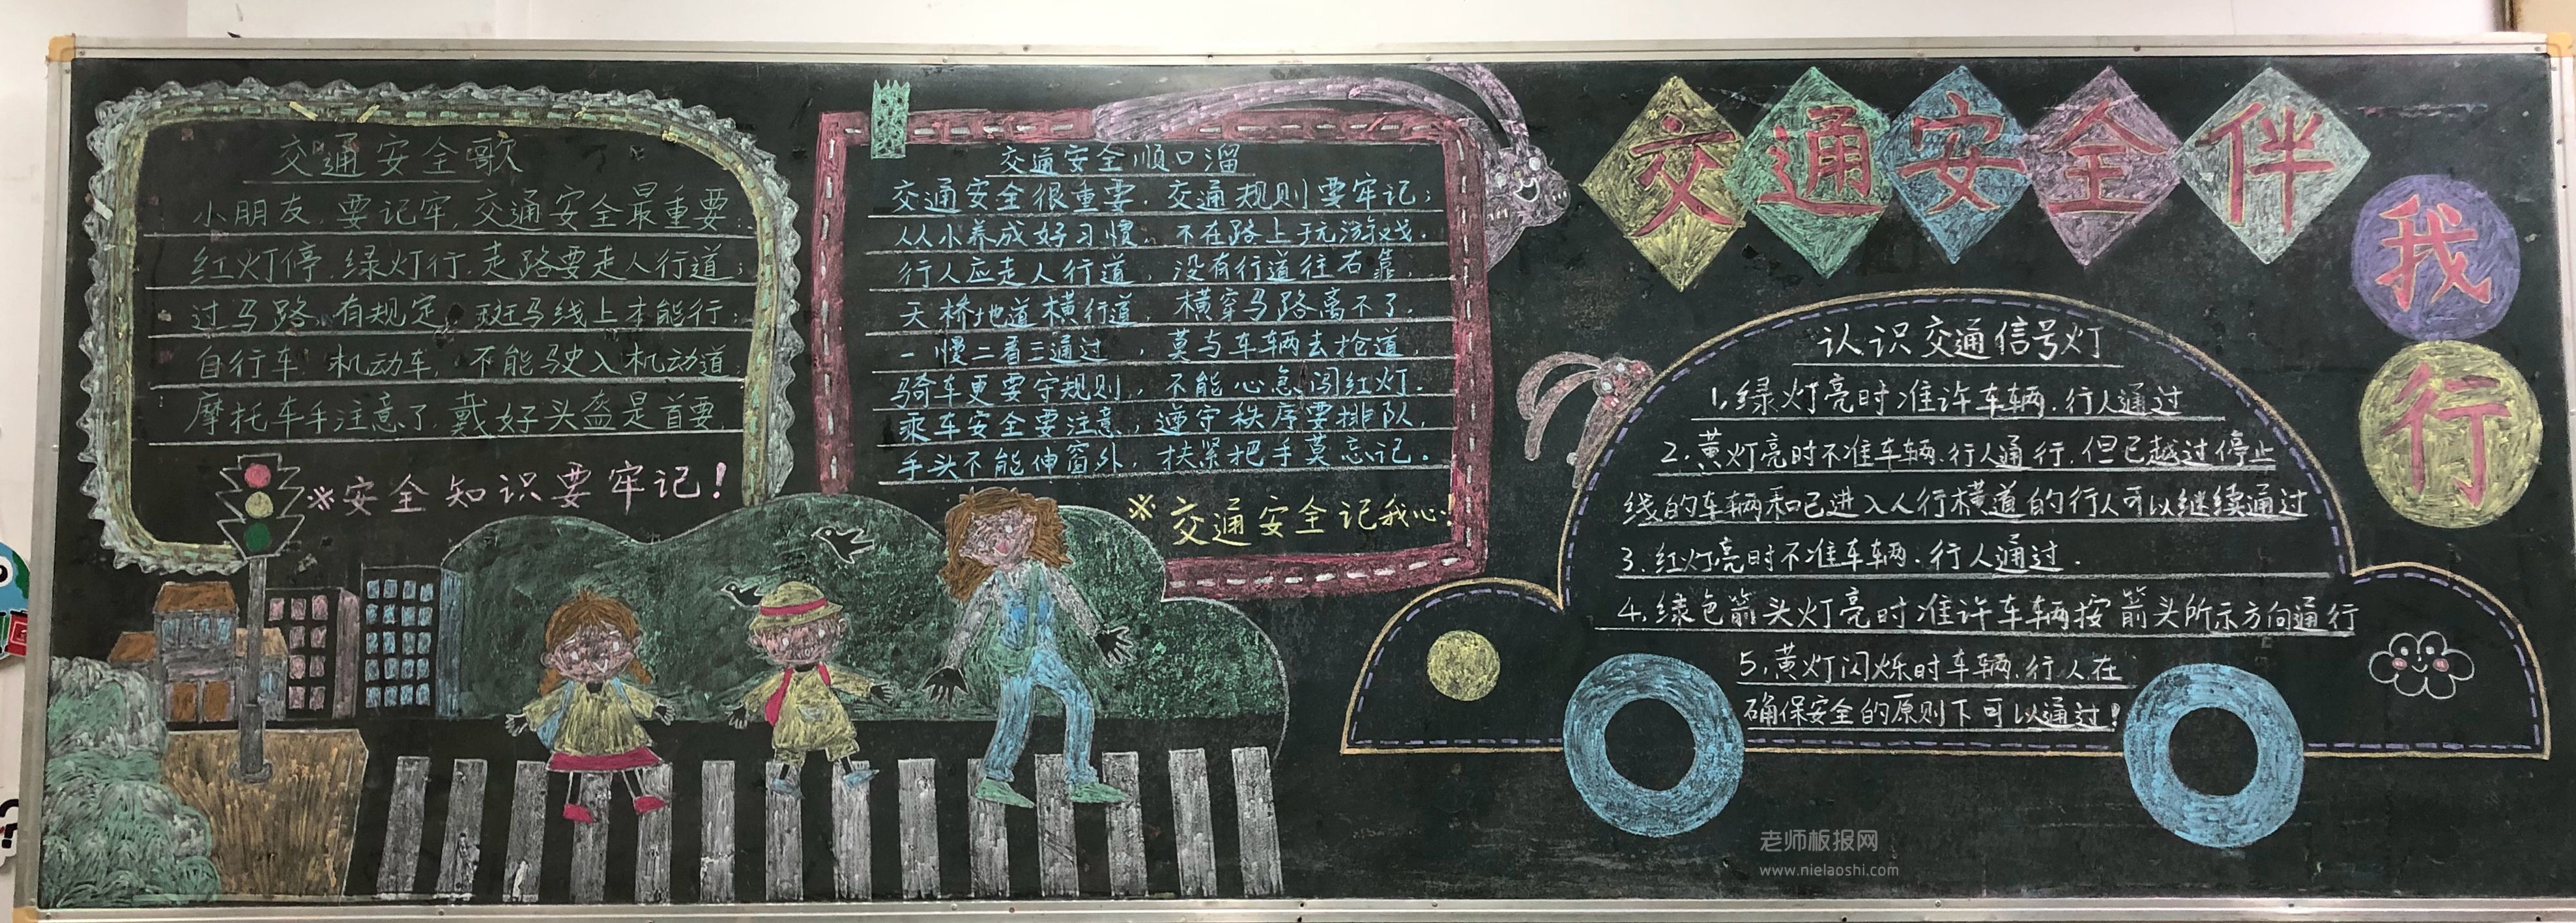 交通安全伴我行
交通安全歌
小朋友,要记牢,交通安全最重要;
红灯停,绿灯行,走路要走人行道;
过马路,有规定,斑马线上才能行;
自行车,机动车,不能驶入机动道,
摩托车手注意了,戴好头盔是首要,
※安全知识要牢记!
交通安全顺口溜
交通安全很重要,交通规则要牢记;
从小养成好习惯,不在路上玩游戏.
行人应走人行道,没有行道往右靠,
天桥地道横行道,横穿马路离不了.
一慢二看三通过,莫与车辆去抢道,
骑车更要守规则,不能心急闯红灯.
乘车安全要注意,遵守秩序要排队,
手头不能伸窗外,扶紧把手莫忘记.
※交通安全记我心!
认识交通信号灯
1,绿灯亮时准许车辆.行人通过
2.黄灯亮时不准车辆.行人通行,但已越过停止
线的车辆和已进入人行横道的行人可以继续通过
3.红灯亮时不准车辆.行人通过.
4,绿色箭头灯亮时准许车辆按箭头所示方向通行
5,黄灯闪烁时车辆.行人在
确保安全的原则下可以通过!
老师板报网
www.nielaoshi.com